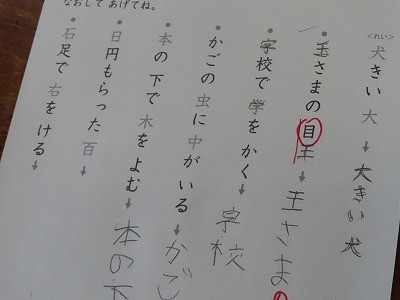 なおして あげてね。
<れい>
犬きい 大 → 大きい 犬
● 玉さまの 目王 → 王さまの
● 字校で 学を かく → 学校
● かごの 虫に 中が いる → かご
● 本の 下で 木を よむ → 本の
● 日円もらった 百 →
● 石足で 右を ける →